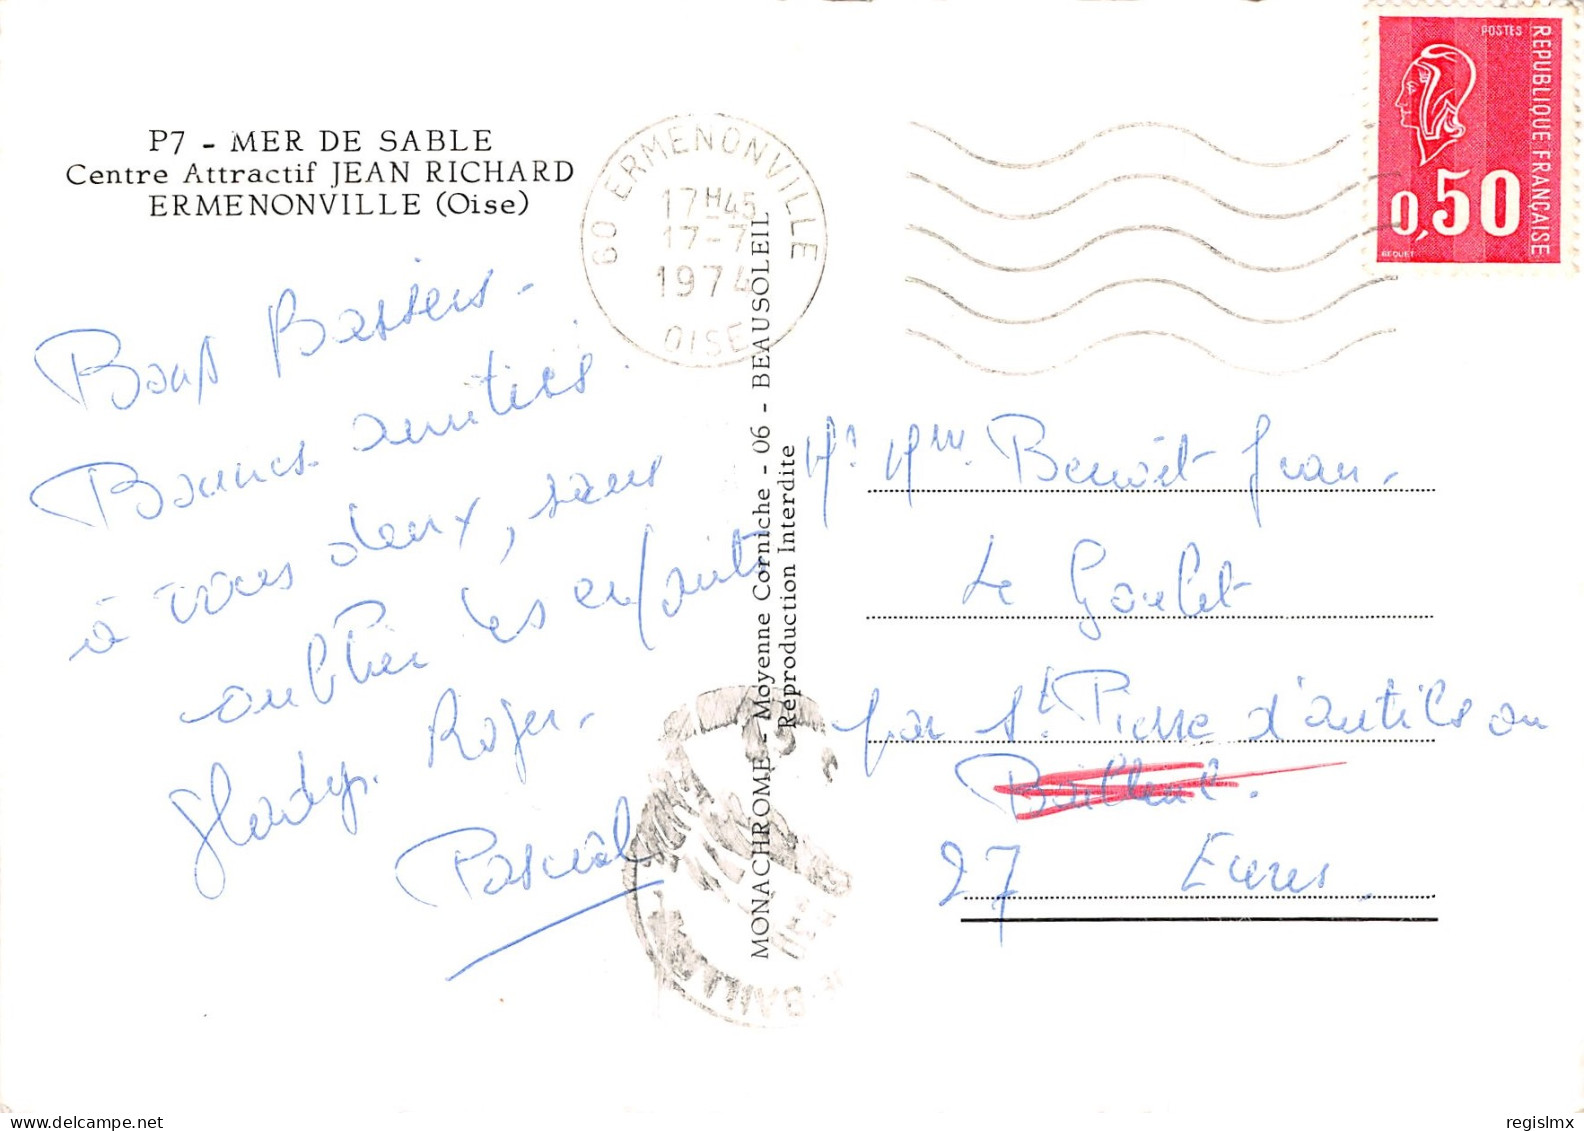 P7 - MER DE SABLE
Centre Attractif JEAN RICHARD
ERMENONVILLE (Oise)
60 ERMENONVILLE
17H45
17-7
1974
OISE
POSTES
REPUBLIQUE FRANÇAISE
0,50
BEQUET
Bons Baisers -
Bonnes amitiés
à vous deux, sans
oublier les enfants
Glady. Roger -
Pascal
MONACHROME - Moyenne Corniche - 06 - BEAUSOLEIL
Reproduction Interdite
Mr Mme Benoît Jean -
Le Goulet
par St Pierre d'autils ou
27 Eure.